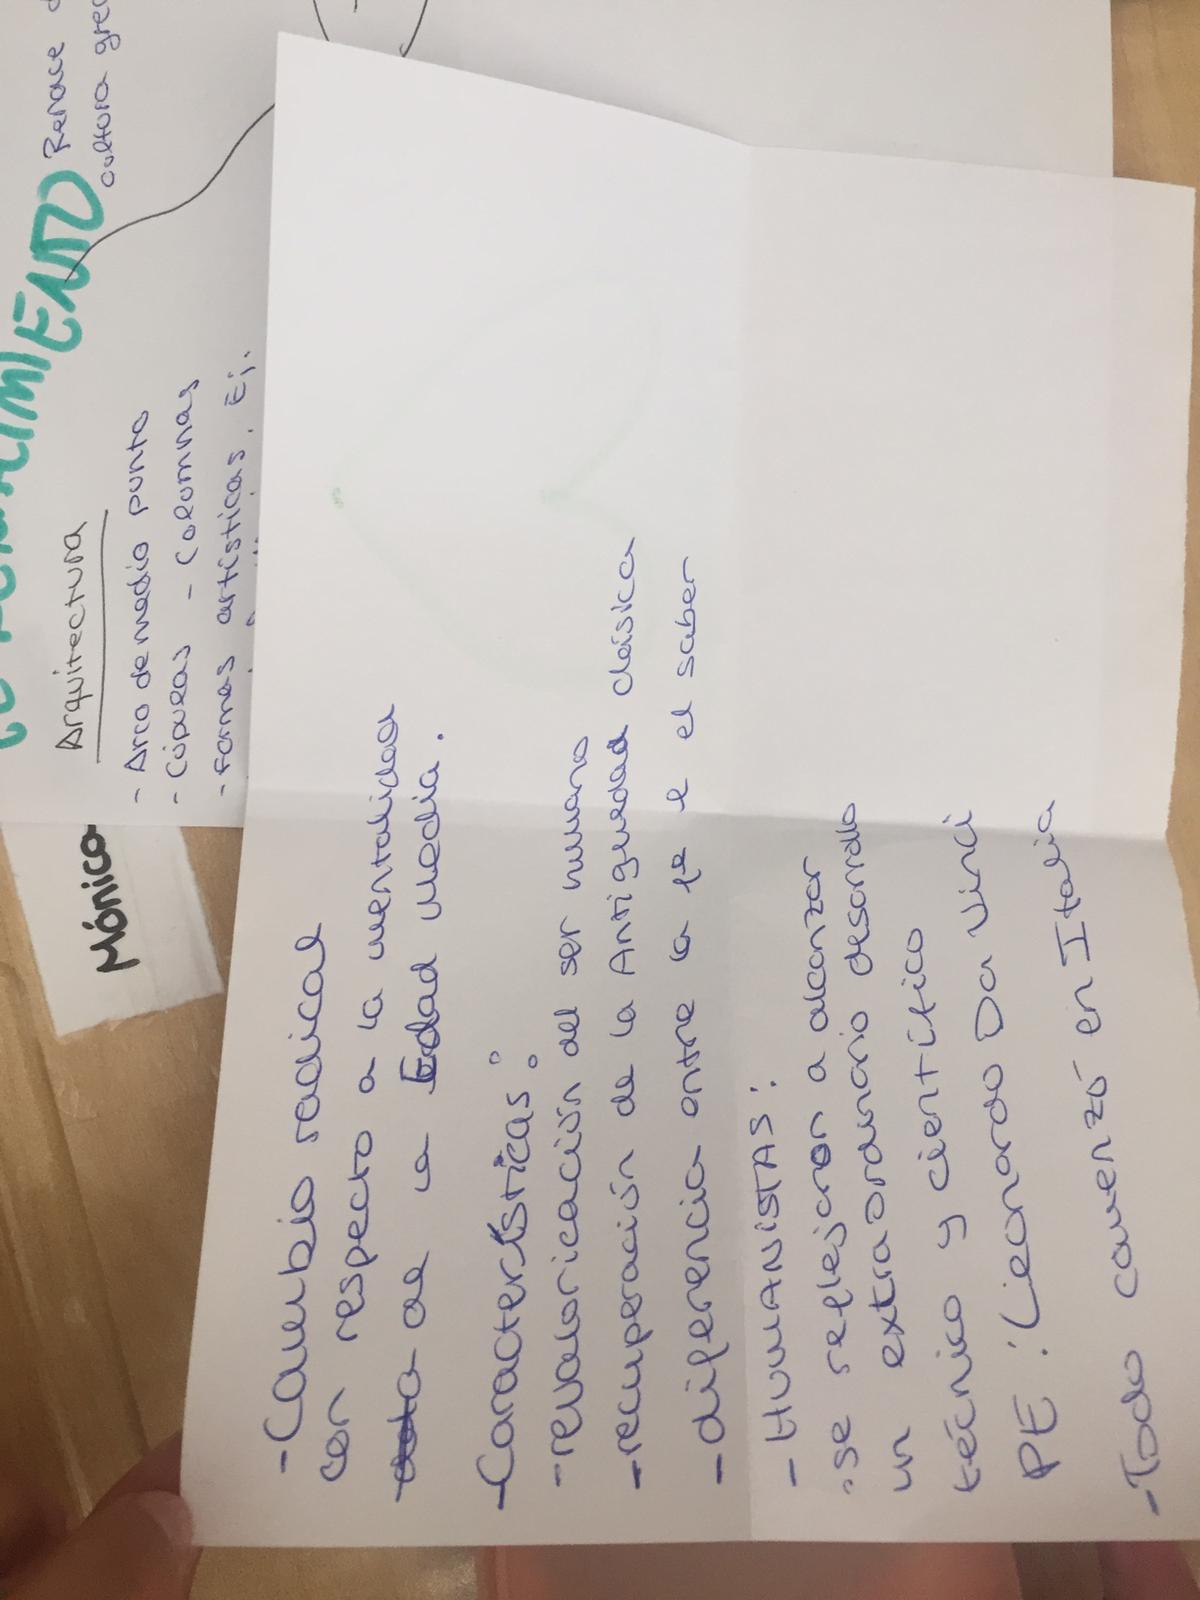 RENACIMIENTO
Renace
cultura
Arquitectura
- Arco de medio punto
- Cúpulas - Columnas
- Formas artísticas. Ej.
Mónica
- Cambio radical
con respecto a la mentalidad
de la Edad Media.
- Características:
- revaloricación del ser humano
- recuperación de la Antiguedad clásica
- diferencia entre la fe e el saber
- HUMANISTAS:
·se reflejaron a alcanzar
un extraordinario desarrollo
técnico y científico
PE: Leonardo Da Vinci
- Todo comenzó en Italia